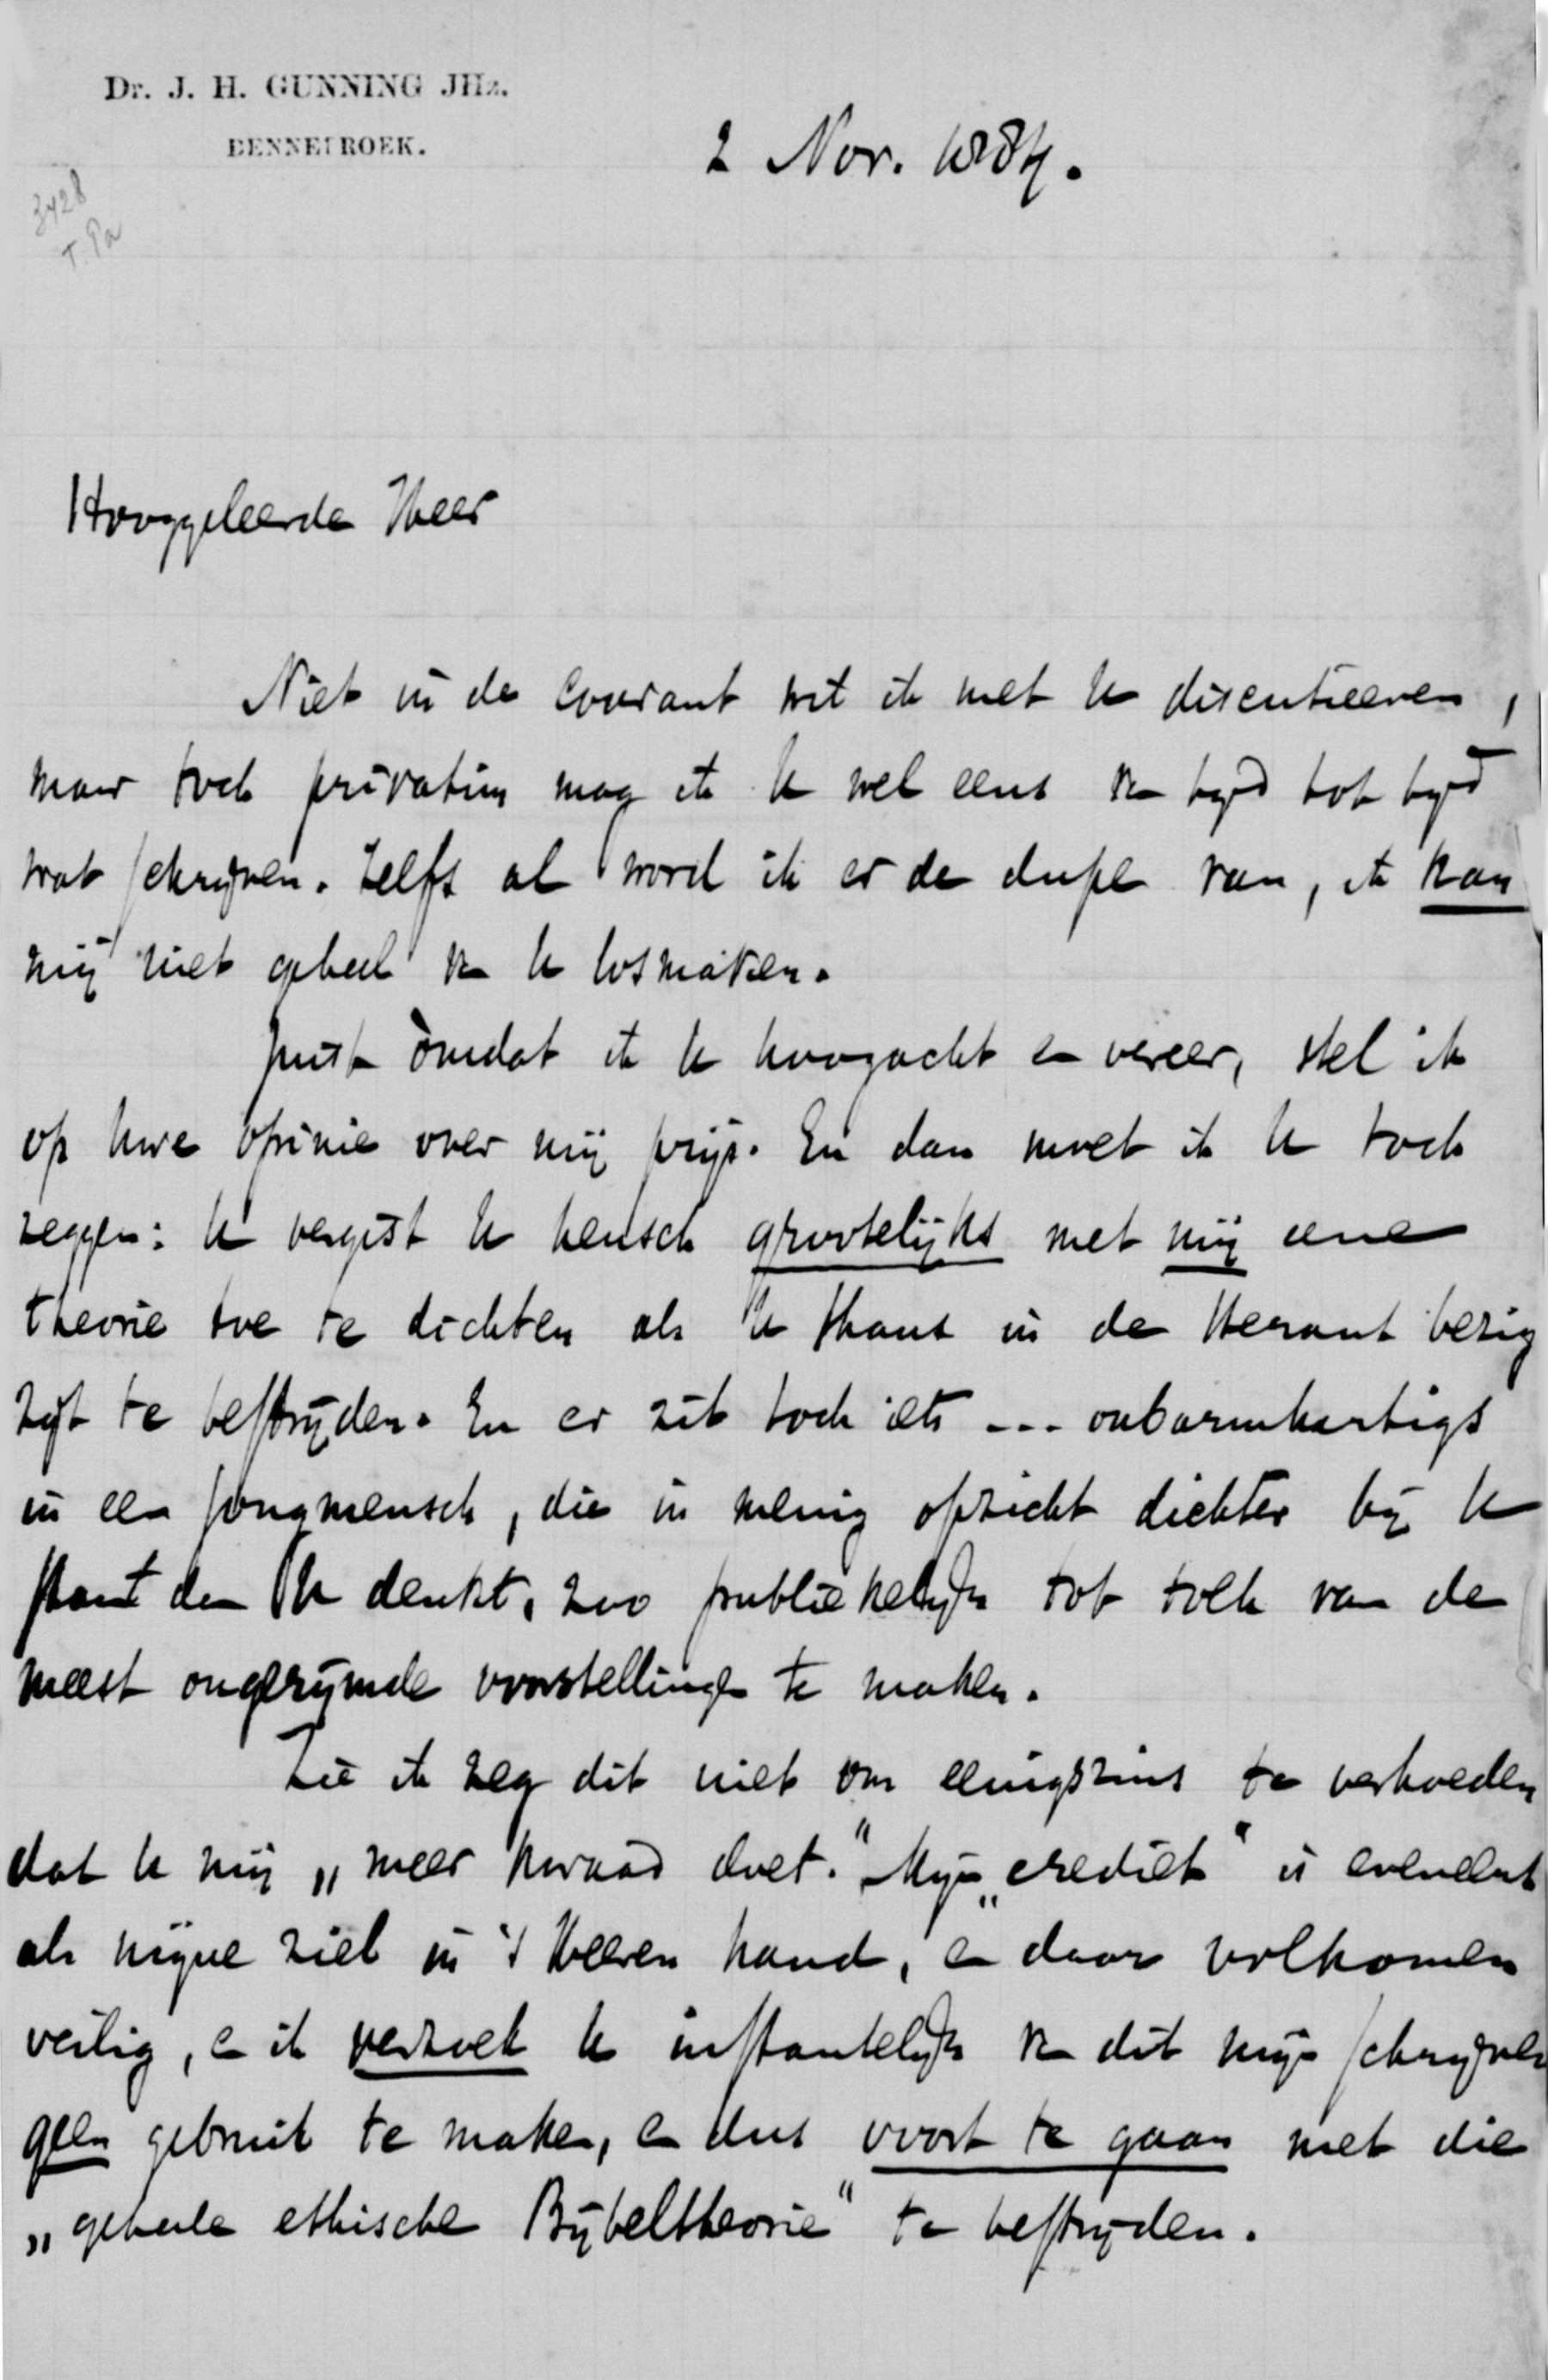 Dr. J. H. GUNNING JHz.
BENNEBROEK.
2 Nov. 1884.
3428
T. Pa
Hooggeleerde Heer
Niet in de courant wil ik met U discutieeren,
maar toch privatim mag ik U wel eens v. tyd tot tyd
wat schrijven. Zelfs al word ik er de dupe van, ik kan
mij niet geheel v. U losmaken.
Juist òmdat ik U hoogacht en vereer, stel ik
op Uwe opinie over mij prijs. En dan moet ik U toch
zeggen: U vergist U heusch grootelijks met mij eene
theorie toe te dichten als U thans in de Heraut bezig
zijt te bestrijden. En er zit toch iets --- onbarmhartigs
in een jongmensch, die in menig opzicht dichter bij U
staat dan U denkt, zoo publiekelijk tot tolk van de
meest ongerijmde voorstellingen te maken.
Zie ik zeg dit niet om eenigszins te verhoeden
dat U mij „meer kwaad doet." Mijn „crediet" is evenals
als mijne ziel in 's Heeren hand, en daar volkomen
veilig, en ik verzoek U instantelijk v. dit mijn schrijven
geen gebruik te maken, en dus voort te gaan met die
„geheele ethische Bijbeltheorie" te bestrijden.